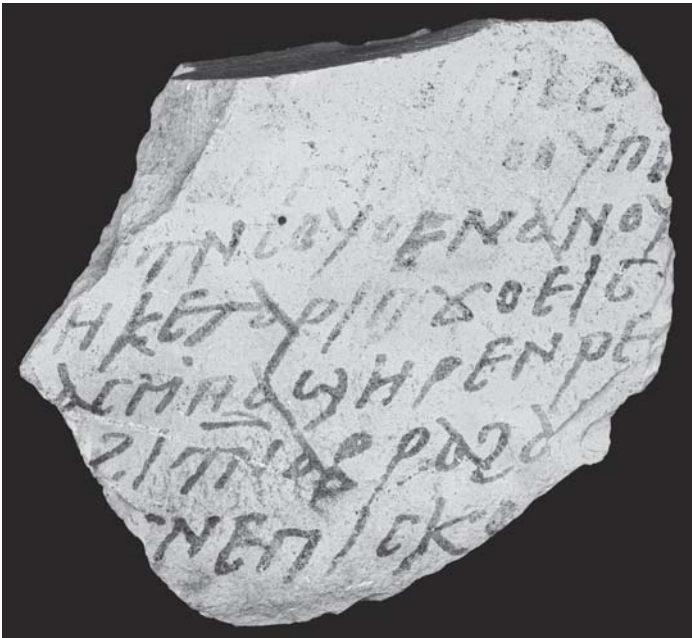 ⲟⲟⲩⲡ
ⲧⲛⲥⲟⲩⲟⲉⲛⲁⲛⲟⲩ
ⲏⲕⲉⲧⲁⲣⲓⲡϫⲟⲉⲓⲥ
ⲁⲥⲙⲡⲁϣⲏⲣⲉⲛⲣⲉ
ϩⲓⲧⲛⲁⲃⲣⲁϩⲁ
ⲛⲉⲡⲓⲥⲕⲟ